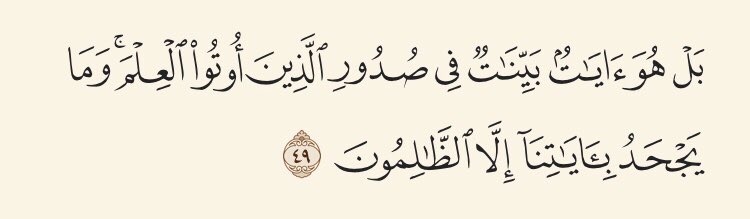 بَلْ هُوَ ءَايَٰتٌۢ بَيِّنَٰتٌ فِى صُدُورِ ٱلَّذِينَ أُوتُوا۟ ٱلْعِلْمَ ۚ وَمَا
يَجْحَدُ بِـَٔايَٰتِنَآ إِلَّا ٱلظَّٰلِمُونَ ٤٩